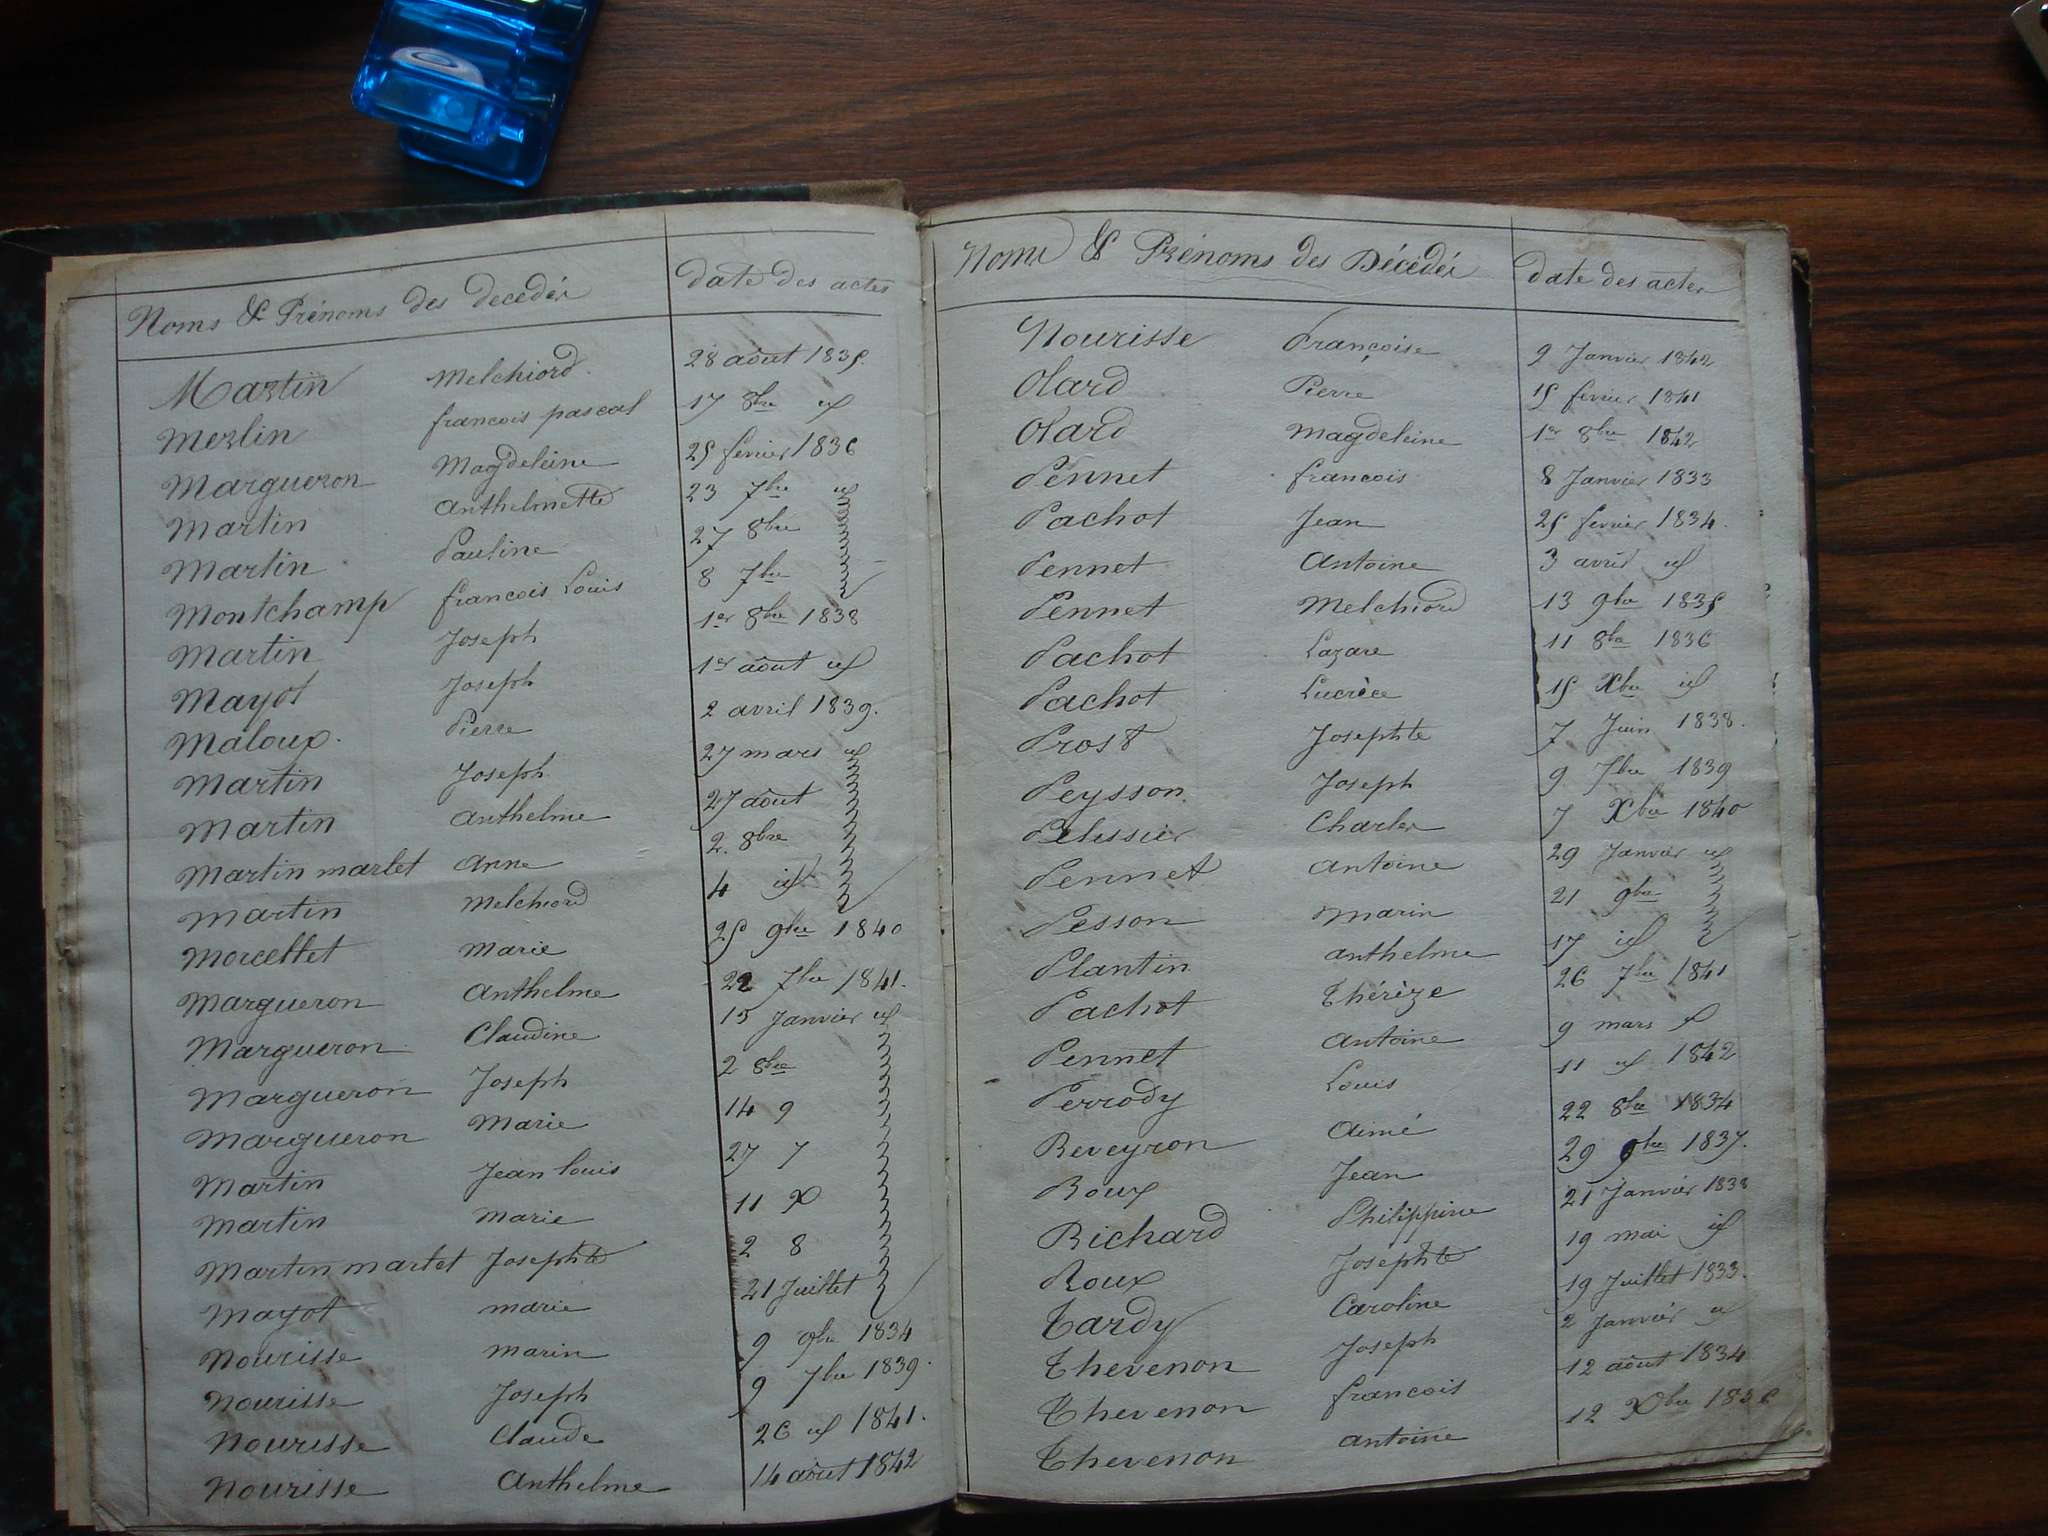 Noms & Prénoms des décédés date des actes
Martin Melchiord. 28 août 1835.
Merlin francois pascal 17 8bre id
Margueron Magdeleine 25 fevrier 1836
Martin Anthelmette 23 7bre id
Martin Pauline 27 8bre
Montchamp francois Louis 8 7bre
Martin Joseph 1er 8bre 1838
Mayot Joseph 1er août id
Maloux. Pierre 2 avril 1839.
Martin Joseph 27 mars id
Martin Anthelme 27 août
Martin martet Anne 2. 8bre
Martin Melchiord 4 id
Morcellet Marie 25 9bre 1840
Margueron Anthelme 22 7bre 1841.
Margueron Claudine 15 Janvier id
Margueron Joseph 2 8bre
Margueron Marie 14 9
Martin Jean louis 27 7
Martin marie 11 X
Martin martet Josephte 2 8
Mayot marie 21 Juillet
Nourisse marin 9 9bre 1834
Nourisse Joseph 9 7bre 1839.
Nourisse Claude 26 id 1841.
Nourisse Anthelme 14 août 1842
Noms & Prénoms des Décédés date des actes
Nourisse Françoise 9 Janvier 1842
Olard Pierre 15 fevrier 1841
Olard Magdeleine 1er 8bre 1842
Pennet francois 8 Janvier 1833
Pachot Jean 25 fevrier 1834.
Pennet Antoine 3 avril id
Pennet Melchiord 13 9bre 1835
Pachot Lazare 11 8bre 1836
Pachot Lucrèce 15 Xbre id
Prost Josephte 7 Juin 1838.
Peysson Joseph 9 7bre 1839
Pelissier Charles 7 Xbre 1840
Pennet Antoine 29 Janvier id
Pesson Marin 21 9bre
Plantin anthelme 17 id
Pachot Thérèze 26 7bre 1841
Pennet Antoine 9 mars id
Perrody Louis 11 id 1842
Reveyron Aimé 22 8bre 1834
Roux Jean 29 9bre 1837.
Richard Philippine 21 Janvier 1838
Roux Josephte 19 mai id
Tardy Caroline 19 Juillet 1833.
Thevenon Joseph 2 Janvier id
Thevenon francois 12 août 1834
Thevenon Antoine 12 Xbre